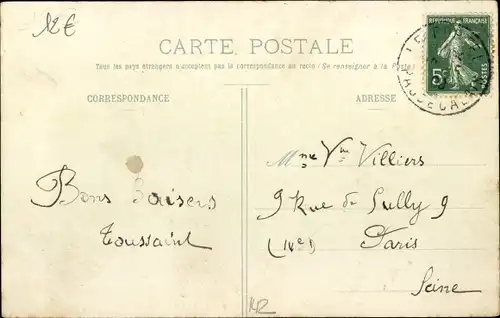 12€
CARTE POSTALE
Tous les pays étrangers n'acceptent pas la correspondance au recto (Se renseigner à la Poste)
RÉPUBLIQUE FRANÇAISE
5c
POSTES
PAS DE CALAIS
CORRESPONDANCE
ADRESSE
Bons Baisers
Toussaint
Mme Vve Villiers
9 Rue de Sully 9
(IVe)
Paris
Seine